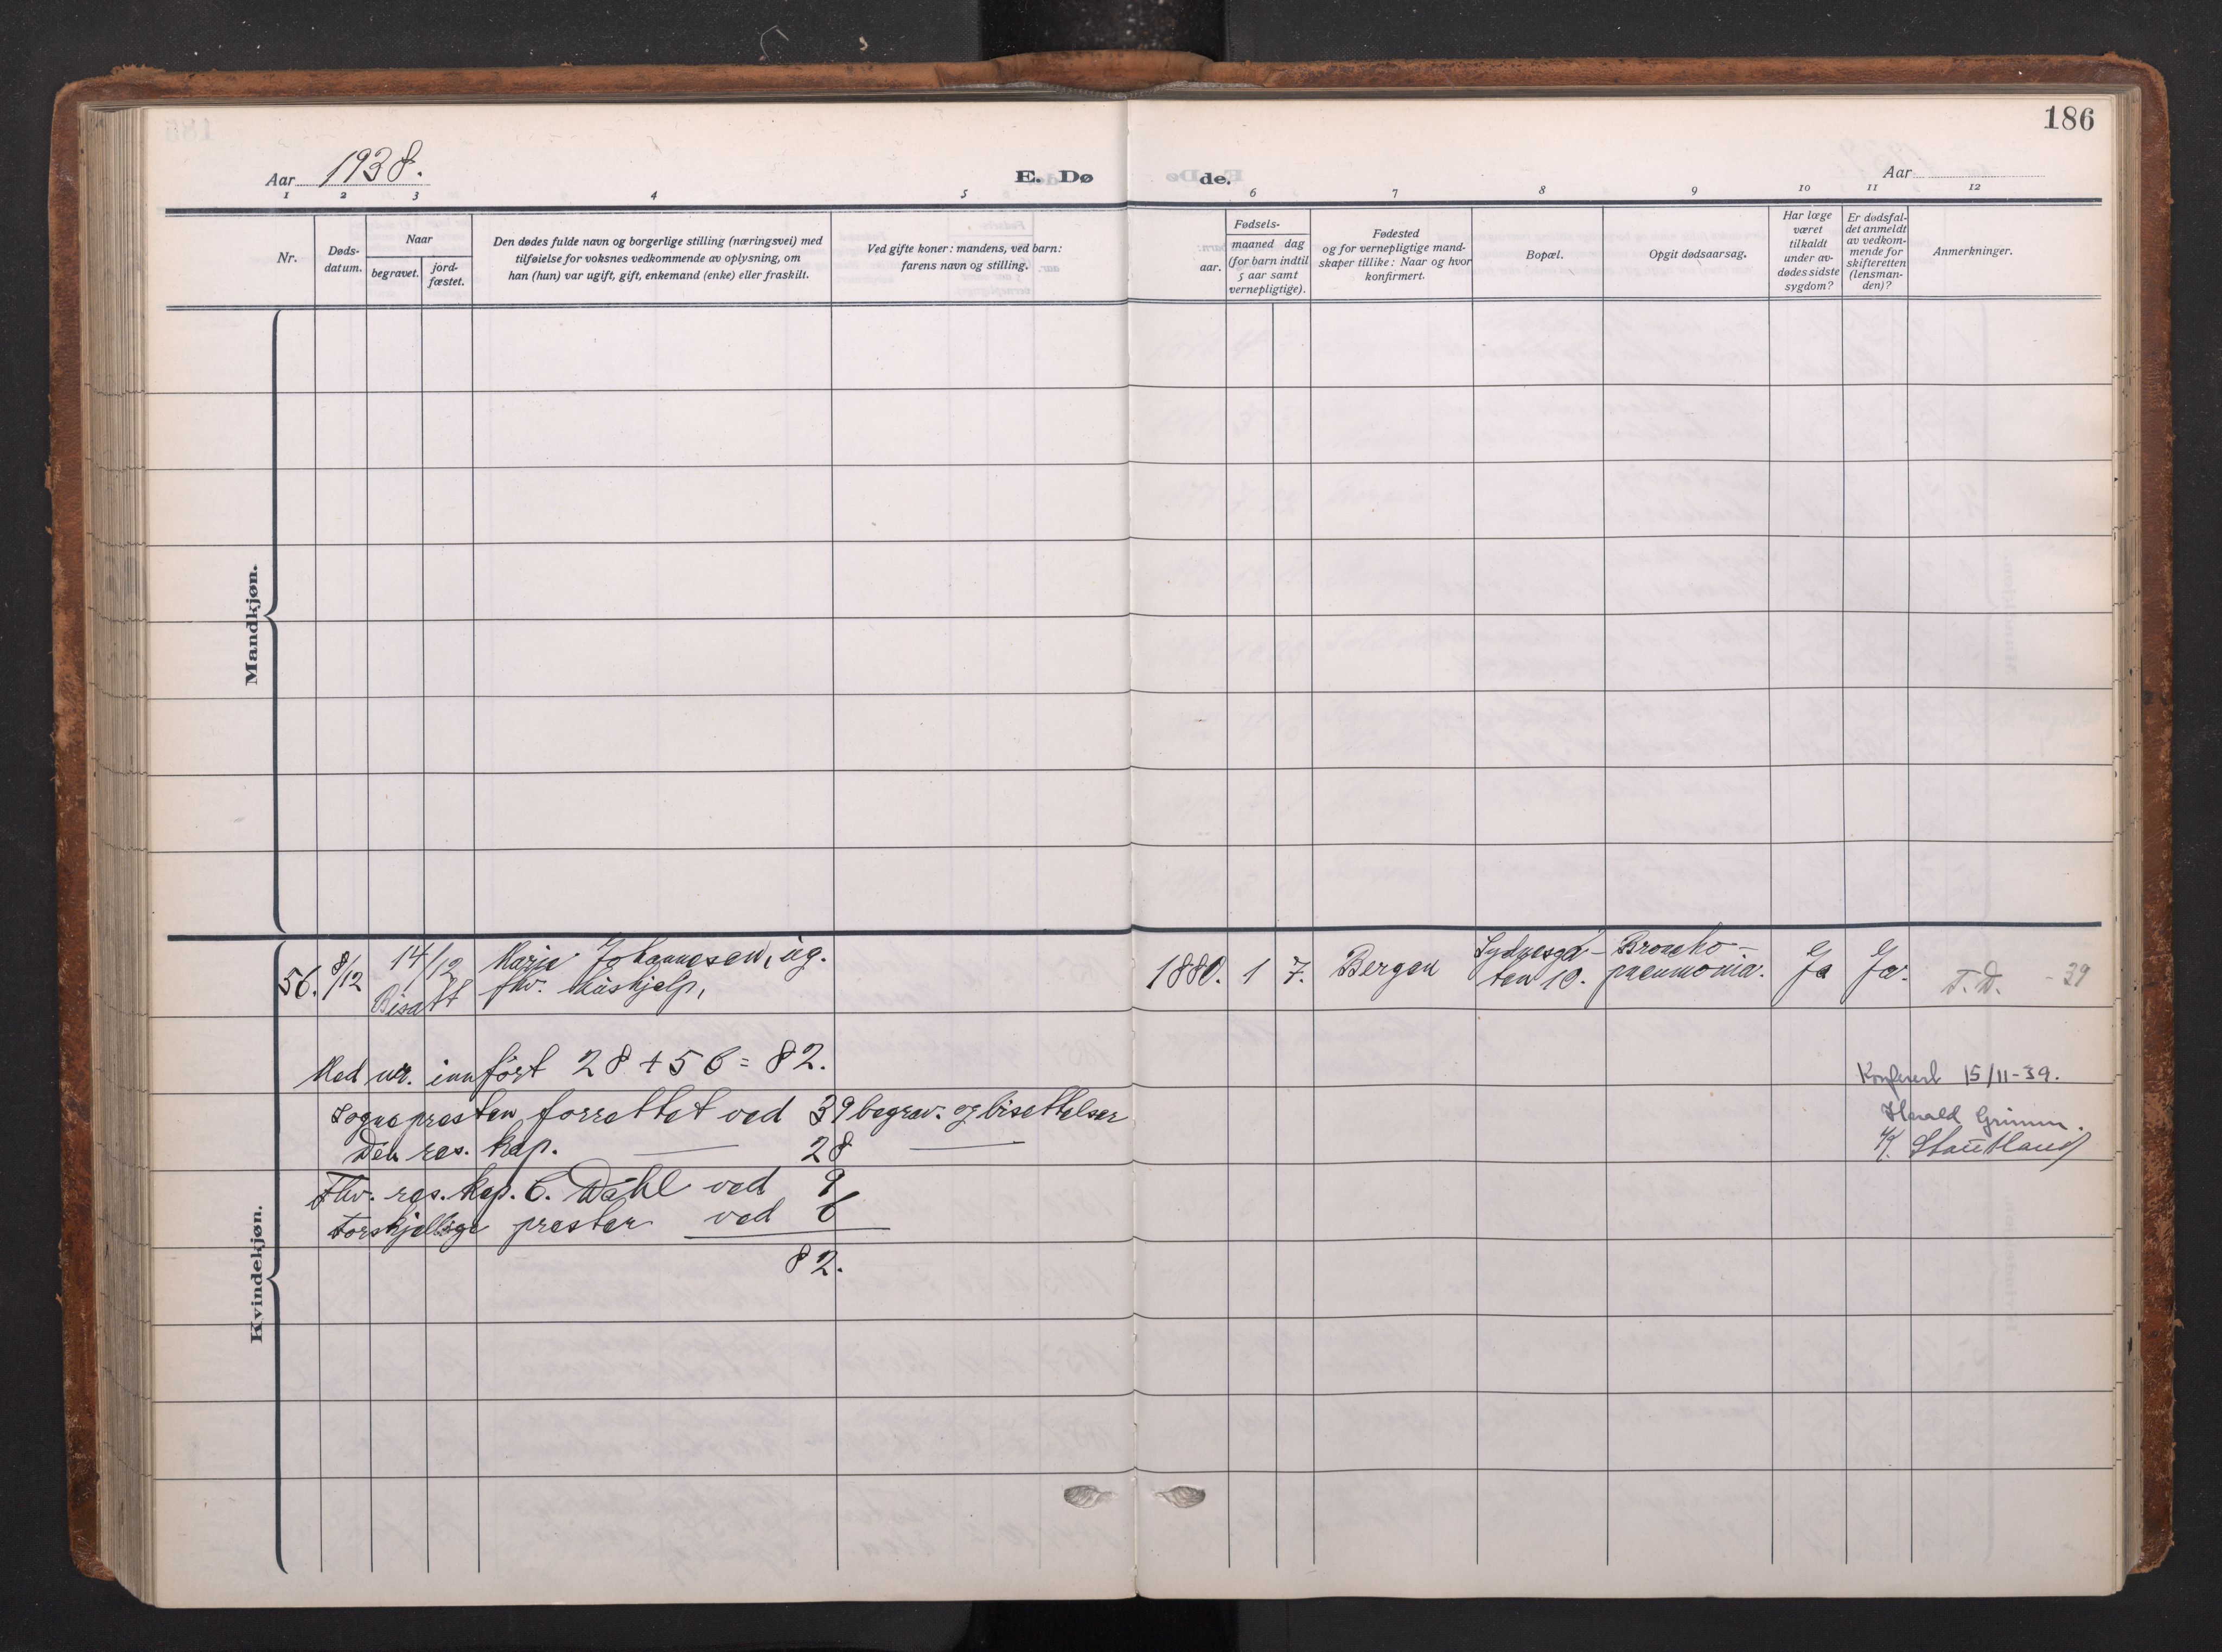 186
Aar 1938.
E. Dø
de.
Aar
1 2 3 4 5 6 7 8 9 10 11 12
Nr.
Døds-
datum.
Naar
begravet.
jord-
fæstet.
Den dødes fulde navn og borgerlige stilling (næringsvei) med
tilføielse for voksnes vedkommende av oplysning, om
han (hun) var ugift, gift, enkemand (enke) eller fraskilt.
Ved gifte koner: mandens, ved barn:
farens navn og stilling.
Fødsels-
aar.
maaned dag
(for barn indtil
5 aar samt
vernepligtige).
Fødested
og for vernepligtige mand-
skaper tillike: Naar og hvor
konfirmert.
Bopæl.
Opgit dødsaarsag.
Har læge
været
tilkaldt
under av-
dødes sidste
sygdom?
Er dødsfal-
det anmeldt
av vedkom-
mende for
skifteretten
(lensman-
den)?
Anmerkninger.
Mandkjøn.
Kvindekjøn.
56.
8/12
14/12
Bisatt
Marie Johannesen, ug.
fhv. hushjelp,
1880. 1 7.
Bergen
Sydnesga-
ten 10.
Broncho-
pneumonia.
Ja
Ja.
T. D. - 39
Med nr. innført 28 + 56 = 82.
Sognepresten forrettet ved 39 begrav. og bisettelser
Den res. kap. — 28 —
Fhv. res. kap. C. Dahl ved 9
Forskjellige prester ved 6
82.
Konferert 15/11-39.
Harald Grimm.